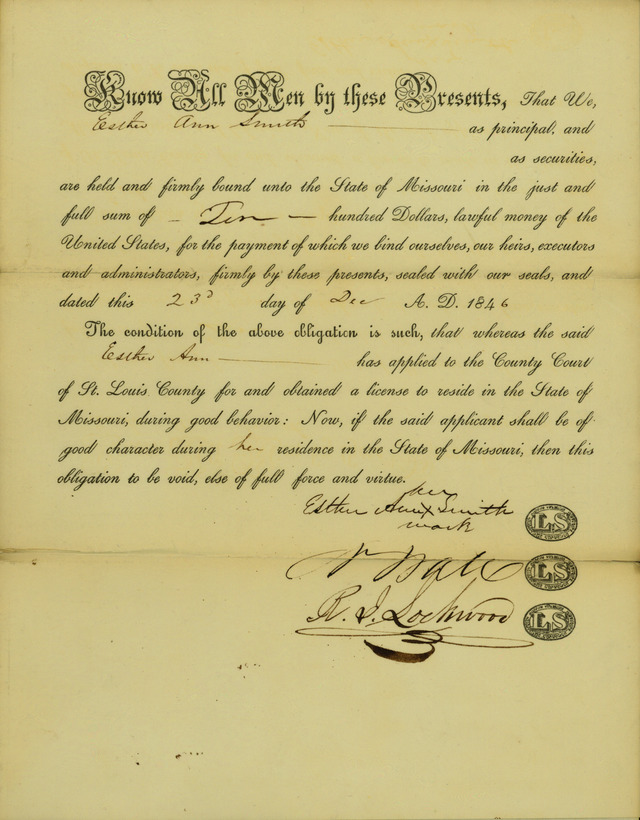 Know All Men by these Presents, That We,
Esther Ann Smith as principal, and
as securities,
are held and firmly bound unto the State of Missouri in the just and
full sum of - Ten - hundred Dollars, lawful money of the
United States, for the payment of which we bind ourselves, our heirs, executors
and administrators, firmly by these presents, sealed with our seals, and
dated this 23d day of Dec A. D. 1846
The condition of the above obligation is such, that whereas the said
Esther Ann has applied to the County Court
of St. Louis County for and obtained a license to reside in the State of
Missouri, during good behavior: Now, if the said applicant shall be of
good character during her residence in the State of Missouri, then this
obligation to be void, else of full force and virtue.
her
Esther Ann X Smith LS
mark
LS
R. J. Lockwood LS